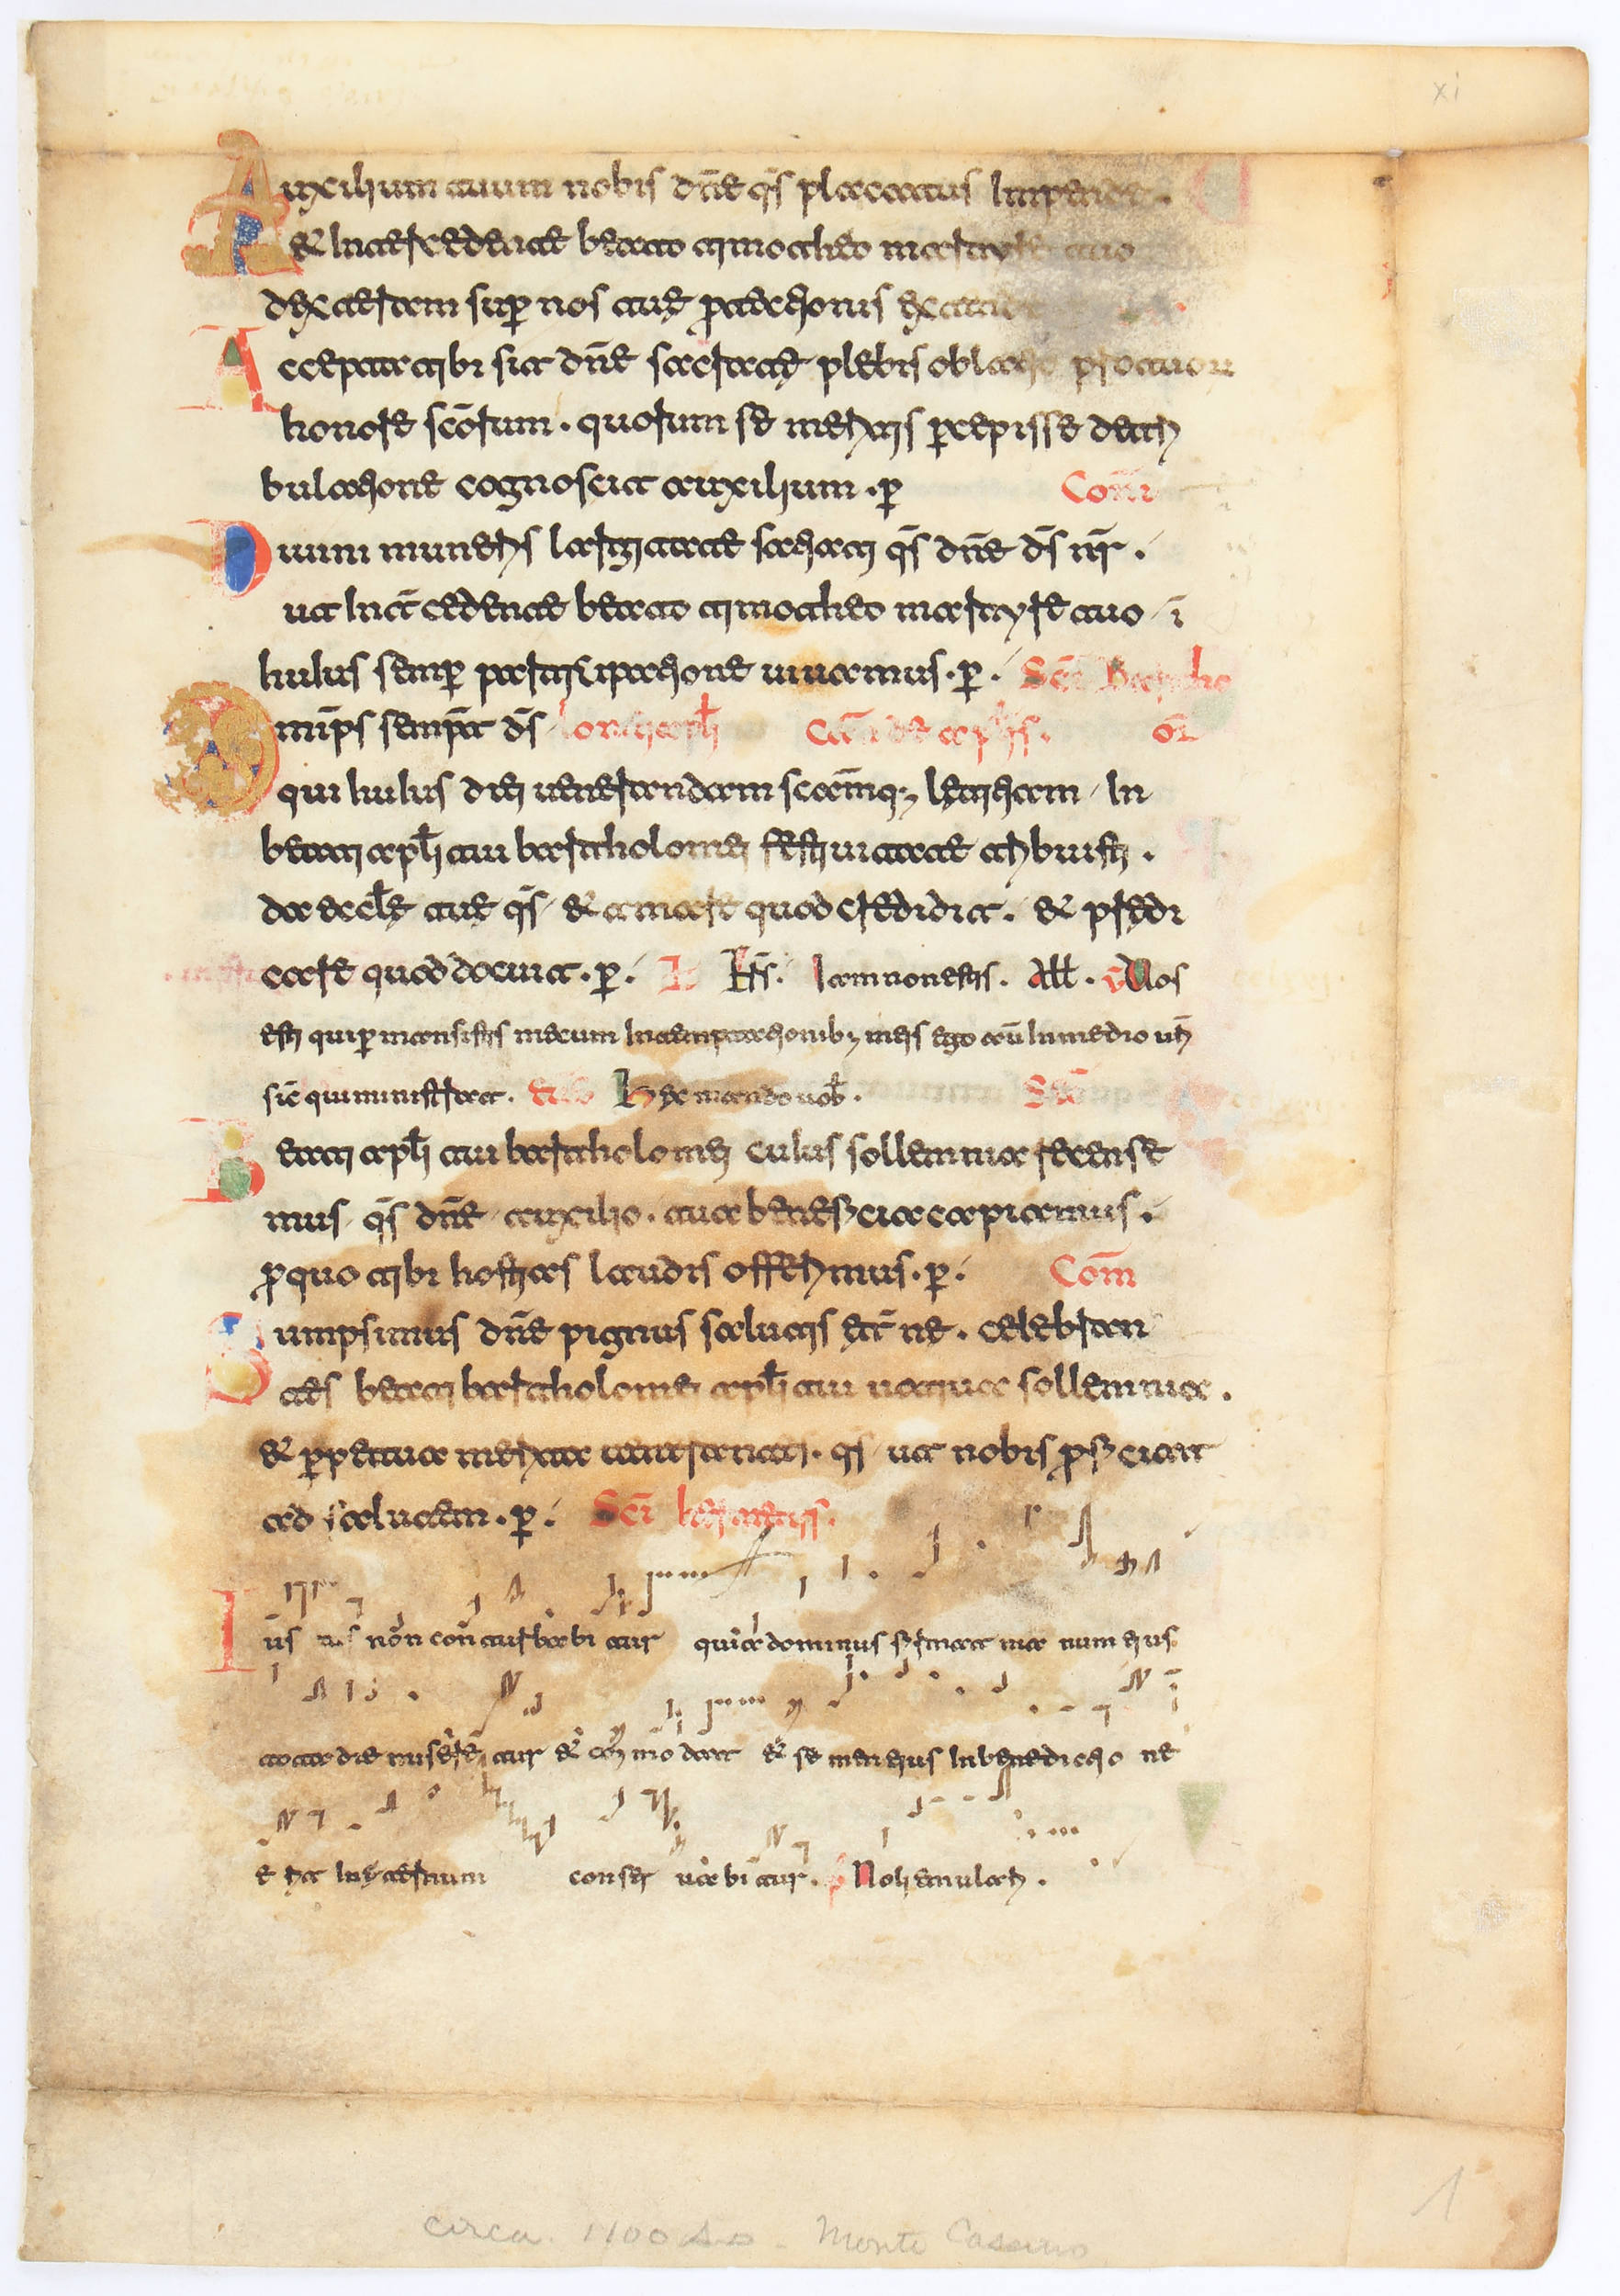 xi
Auxilium tuum nobis dñe qs̄ placatus Impende .
& Intercedente beato timotheo martyre tuo
dexteram sup̄ nos tuę p̄pitiationis extende
Accepta tibi sit dñe sacratę plebis oblatio p̄ suorum
honore sc̄orum . quorum se meritis p̄cepisse detri
bulatione cognoscit auxilium . p̄ Com̄
Diuini muneris largitate satiati qs̄ dñe ds̄ nr̄ .
ut Int̄cedente beato timotheo martyre tuo / ī
huius semp̄ participatione uiuamus . p̄ . Sc̄i Bartho
Omīps semp̄t ds̄ lomei apl̄i Cant de apl̄is . or̄
qui huius diei uenerandam sc̄amq; lętitiam / In
beati apl̄i tui bartholomei festiuitate tribuisti .
da eccl̄ę tuę qs̄ / & amare quod credidit . & prędi
care quod docuit . p̄ . R̄s . Iam non estis . All . V Vos
estis qui p̄mansistis mecum In temptationib; meis ego aut̄ In medio ur̄i
sic̄ qui ministrat . Hęc mando uob̄ . Sec̄
Beati apl̄i tui bartholomei cuius sollemnia recense
mus / qs̄ dñe / auxilio . tua beneficia capiamus .
p̄ quo tibi hostias laudis offerimus . p̄ . Com̄
Sumpsimus dñe pignus salutis et̄ nę . celebran
tes beati bartholomei apl̄i tui uotiua sollemnia .
& p̄petua merita uenerantes . qs̄ / ut nobis p̄ficiat
ad salutem . p̄ . Sc̄i
Iustus non conturbabitur quia dominus firmat manum eius
tota die miseretur & commodat & semen eius In benedictione
erit In ęternum conseruabitur . p̄ Noli emulari .
circa . 1100 A.D. - Monte Cassino
1